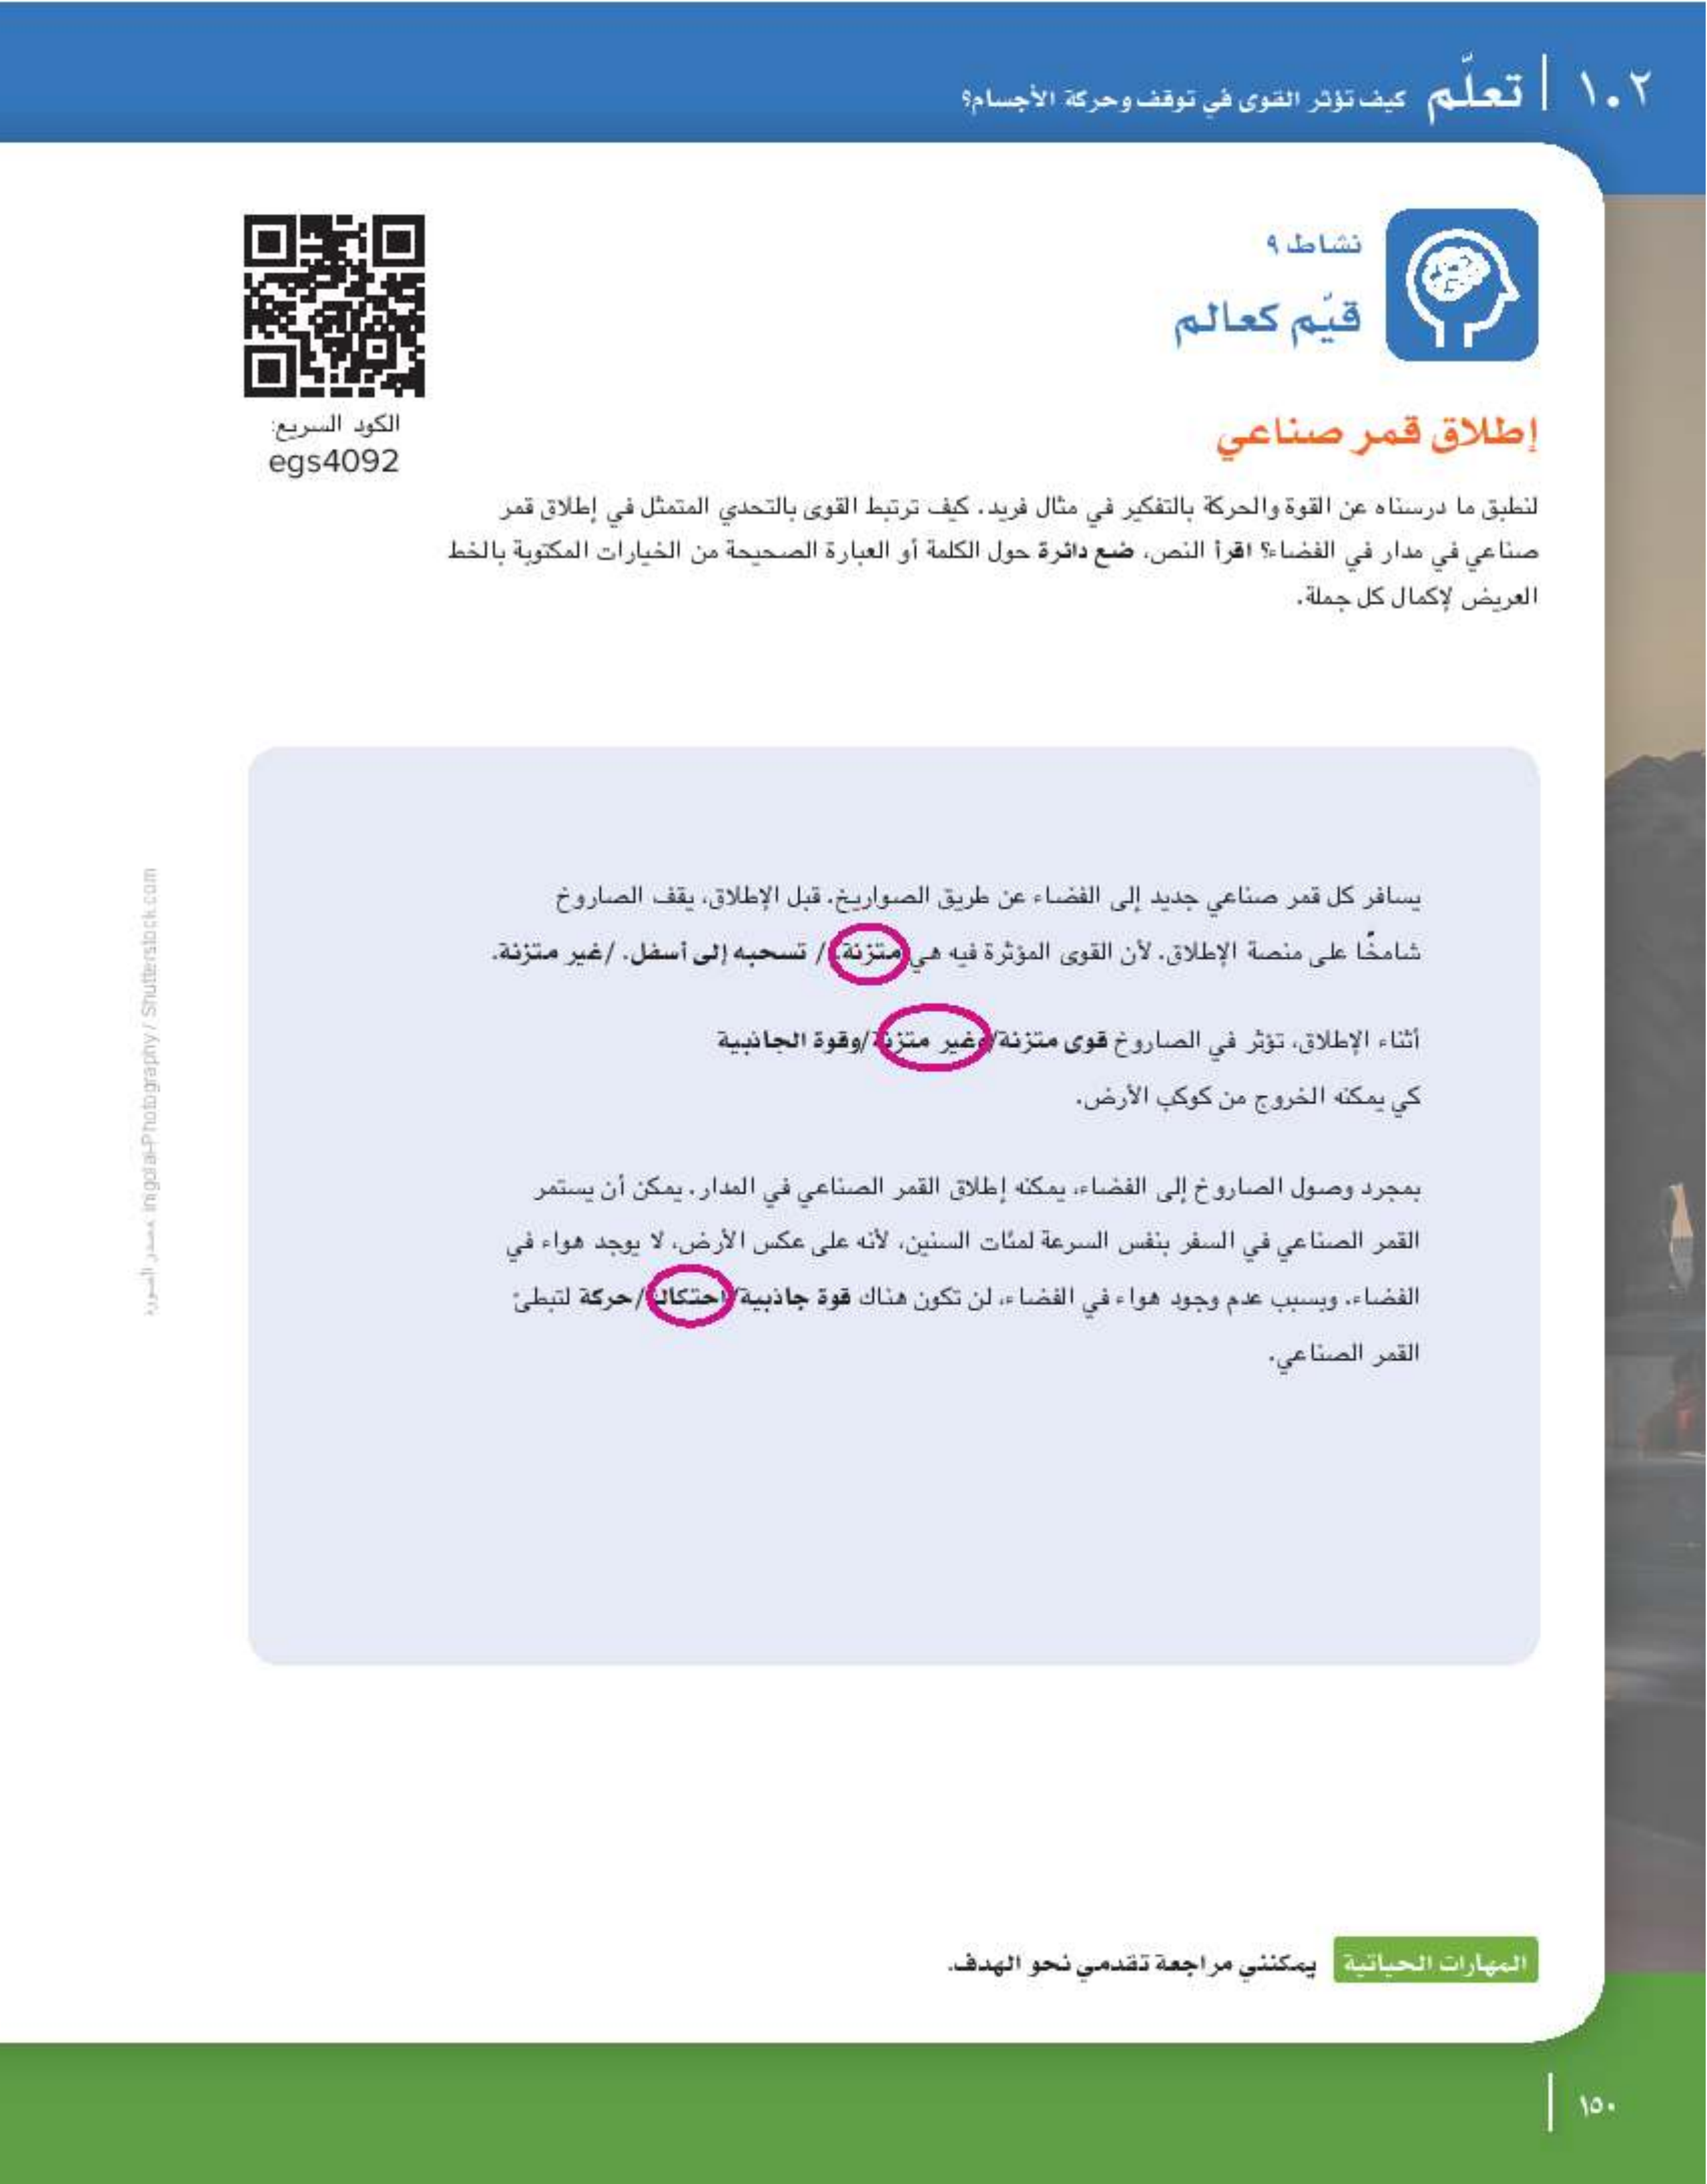 ١.٢ | تعلّم كيف تؤثر القوى في توقف وحركة الأجسام؟
نشاط ٩
قيّم كعالم
الكود السريع:
egs4092
إطلاق قمر صناعي
لنطبق ما درسناه عن القوة والحركة بالتفكير في مثال فريد. كيف ترتبط القوى بالتحدي المتمثل في إطلاق قمر
صناعي في مدار في الفضاء؟ اقرأ النص، ضع دائرة حول الكلمة أو العبارة الصحيحة من الخيارات المكتوبة بالخط
العريض لإكمال كل جملة.
يسافر كل قمر صناعي جديد إلى الفضاء عن طريق الصواريخ. قبل الإطلاق، يقف الصاروخ
شامخًا على منصة الإطلاق. لأن القوى المؤثرة فيه هي متزنة. / تسحبه إلى أسفل. /غير متزنة.
أثناء الإطلاق، تؤثر في الصاروخ قوى متزنة/وغير متزنة/وقوة الجاذبية
كي يمكنه الخروج من كوكب الأرض.
بمجرد وصول الصاروخ إلى الفضاء، يمكنه إطلاق القمر الصناعي في المدار. يمكن أن يستمر
القمر الصناعي في السفر بنفس السرعة لمئات السنين، لأنه على عكس الأرض، لا يوجد هواء في
الفضاء. وبسبب عدم وجود هواء في الفضاء، لن تكون هناك قوة جاذبية/احتكاك/حركة لتبطئ
القمر الصناعي.
مصدر الصورة: inigolai-Photography / Shutterstock.com
المهارات الحياتية يمكنني مراجعة تقدمي نحو الهدف.
١٥٠